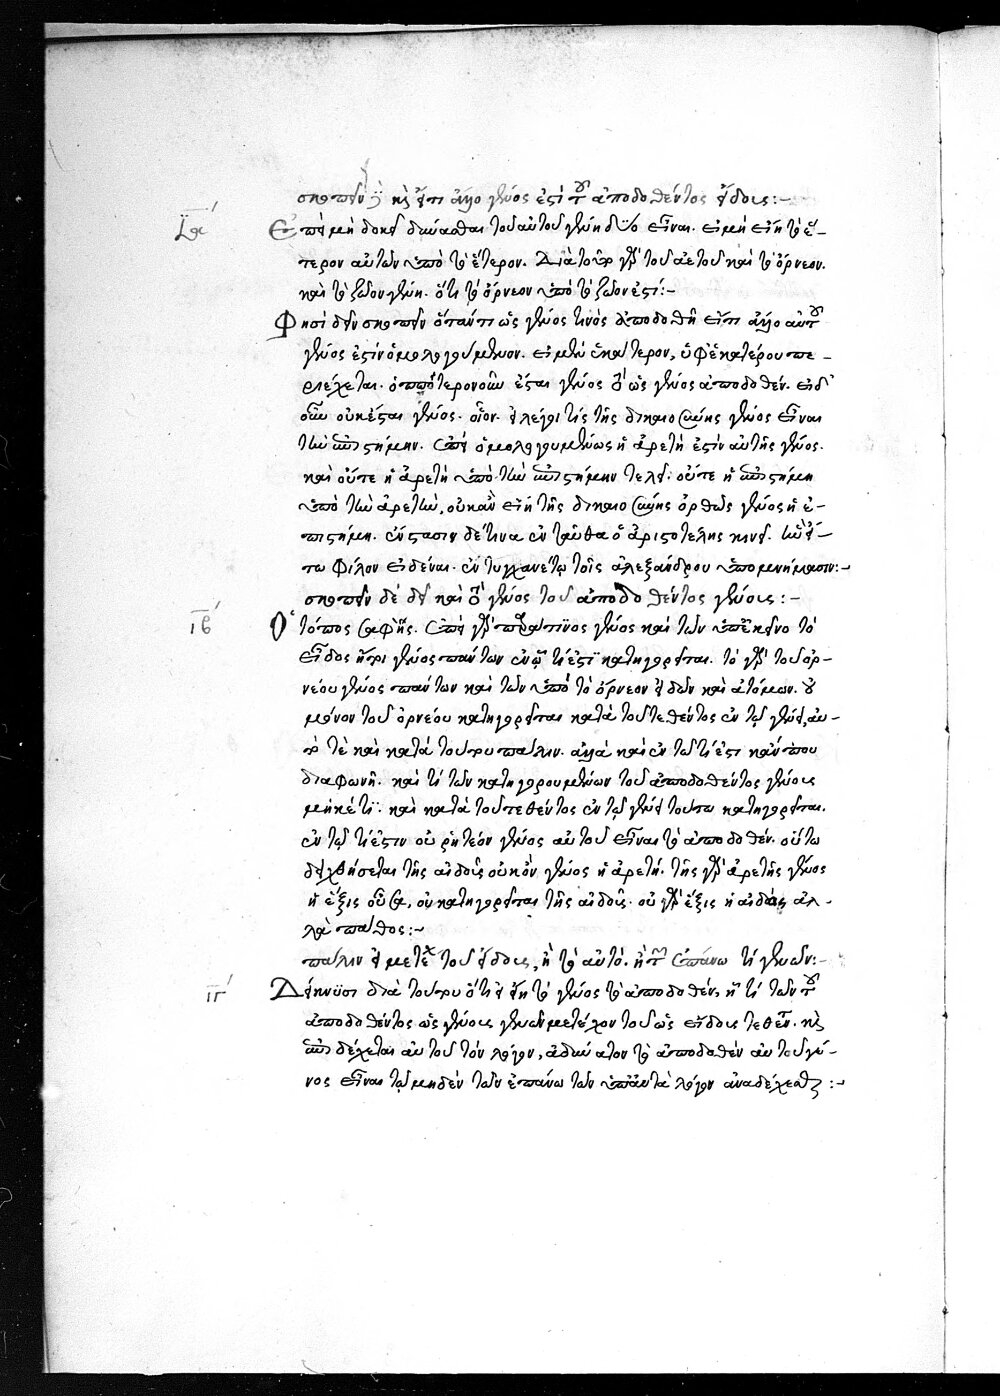 σκοπεῖν δὲ καὶ εἴ τι ἄλλο γένος ἐστὶ τοῦ ἀποδοθέντος εἴδους:-
ια΄
Ἐπεὶ μὴ δοκεῖ δύνασθαι τοῦ αὐτοῦ γένη δύο εἶναι. εἰ μὴ εἴη τὸ ἕ-
τερον αὐτῶν ὑπὸ τὸ ἕτερον. διὰ τοῦτο γὰρ τοῦ ἀετοῦ καὶ τὸ ὄρνεον.
καὶ τὸ ζῶον γένη. ὅτι τὸ ὄρνεον ὑπὸ τὸ ζῶον ἐστί:-
Φησὶ δεῖν σκοπεῖν ὅταν τι ὡς γένος τινὸς ἀποδοθῆ εἴ τι ἄλλο αὐτοῦ
γένος ἐστὶν ὁμολογούμενον. εἰ μὲν ἑκάτερον, ὑφ' ἑκατέρου πε-
ριέχεται. ὁπότερον οὖν ἔσται γένος τὸ ὡς γένος ἀποδοθέν. εἰ δ'
οὖν οὐκ ἔσται γένος. οἷον. εἰ λέγοι τις τῆς δικαιοσύνης γένος εἶναι
τὴν ἐπιστήμην. ἐπεὶ ὁμολογουμένως ἡ ἀρετή ἐστιν αὐτῆς γένος.
καὶ οὔτε ἡ ἀρετὴ ὑπὸ τὴν ἐπιστήμην τελεῖ. οὔτε ἡ ἐπιστήμη
ὑπὸ τὴν ἀρετὴν, οὐκ ἂν εἴη τῆς δικαιοσύνης ὀρθῶς γένος ἡ ἐ-
πιστήμη. ἔνστασιν δέ τινα ἐνταῦθα ὁ ἀριστοτέλης κινεῖ. ἣν εἴ-
τω φίλον εἰδέναι. ἐντυγχανέτω τοῖς ἀλεξάνδρου ὑπομνήμασιν:-
σκοπεῖν δὲ δεῖ καὶ τὸ γένος τοῦ ἀποδοθέντος γένους:-
ιβ΄
Ὁ τόπος σαφής. ἐπεὶ γὰρ τό τινος γένος καὶ τῶν ὑπ' ἐκεῖνο τὸ
εἶδος ἤτοι γένος πάντων ἐν τῷ τί ἐστι κατηγορεῖται. τὸ γὰρ τοῦ ὀρ-
νέου γένος πάντων καὶ τῶν ὑπὸ τὸ ὄρνεον εἰδῶν καὶ ἀτόμων. οὐ
μόνον τοῦ ὀρνέου κατηγορεῖται κατὰ τοῦ τεθέντος ἐν τῷ γένει, αὐ-
τό τε καὶ κατὰ τούτου πάλιν. ἀλλὰ καὶ ἐν τῶ τί ἐστι κἄν που
διαφωνῆ. καὶ τὶ τῶν κατηγορουμένων τοῦ ἀποδοθέντος γένους
μηκέτι. καὶ κατὰ τοῦ τεθέντος ἐν τῷ γένει τούτω κατηγορεῖται.
ἐν τῷ τί ἐστιν οὐ ῥητέον γένος αὐτοῦ εἶναι τὸ ἀποδοθέν. οὕτω
δειχθήσεται τῆς αἰδοῦς οὐκ ὂν γένος ἡ ἀρετή. τῆς γὰρ ἀρετῆς γένος
ἡ ἕξις οὖσα, οὐ κατηγορεῖται τῆς αἰδοῦς. οὐ γὰρ ἕξις ἡ αἰδὼς ἀλ-
λὰ πάθος:-
πάλιν εἰ μετέχει τοῦ εἴδους, ἢ τὸ αὐτό. ἢ τῶν ἐπάνω τί γενῶν:-
ιγ΄
Δείκνυσι διὰ τούτου ὅτι εἰ εἴη τὸ γένος τὸ ἀποδοθέν, ἤ τι τῶν τοῦ
ἀποδοθέντος ὡς γένους γενῶν μετέχον τοῦ ὡς εἴδους τεθέντος. καὶ
ἐπιδέχεται αὐτοῦ τὸν λόγον, ἀδύνατον τὸ ἀποδοθὲν αὐτοῦ γέ-
νος εἶναι τῷ μηδὲν τῶν ἐπάνω τῶν ὑπ' αὐτὰ λόγον ἀναδέχεσθαι:-